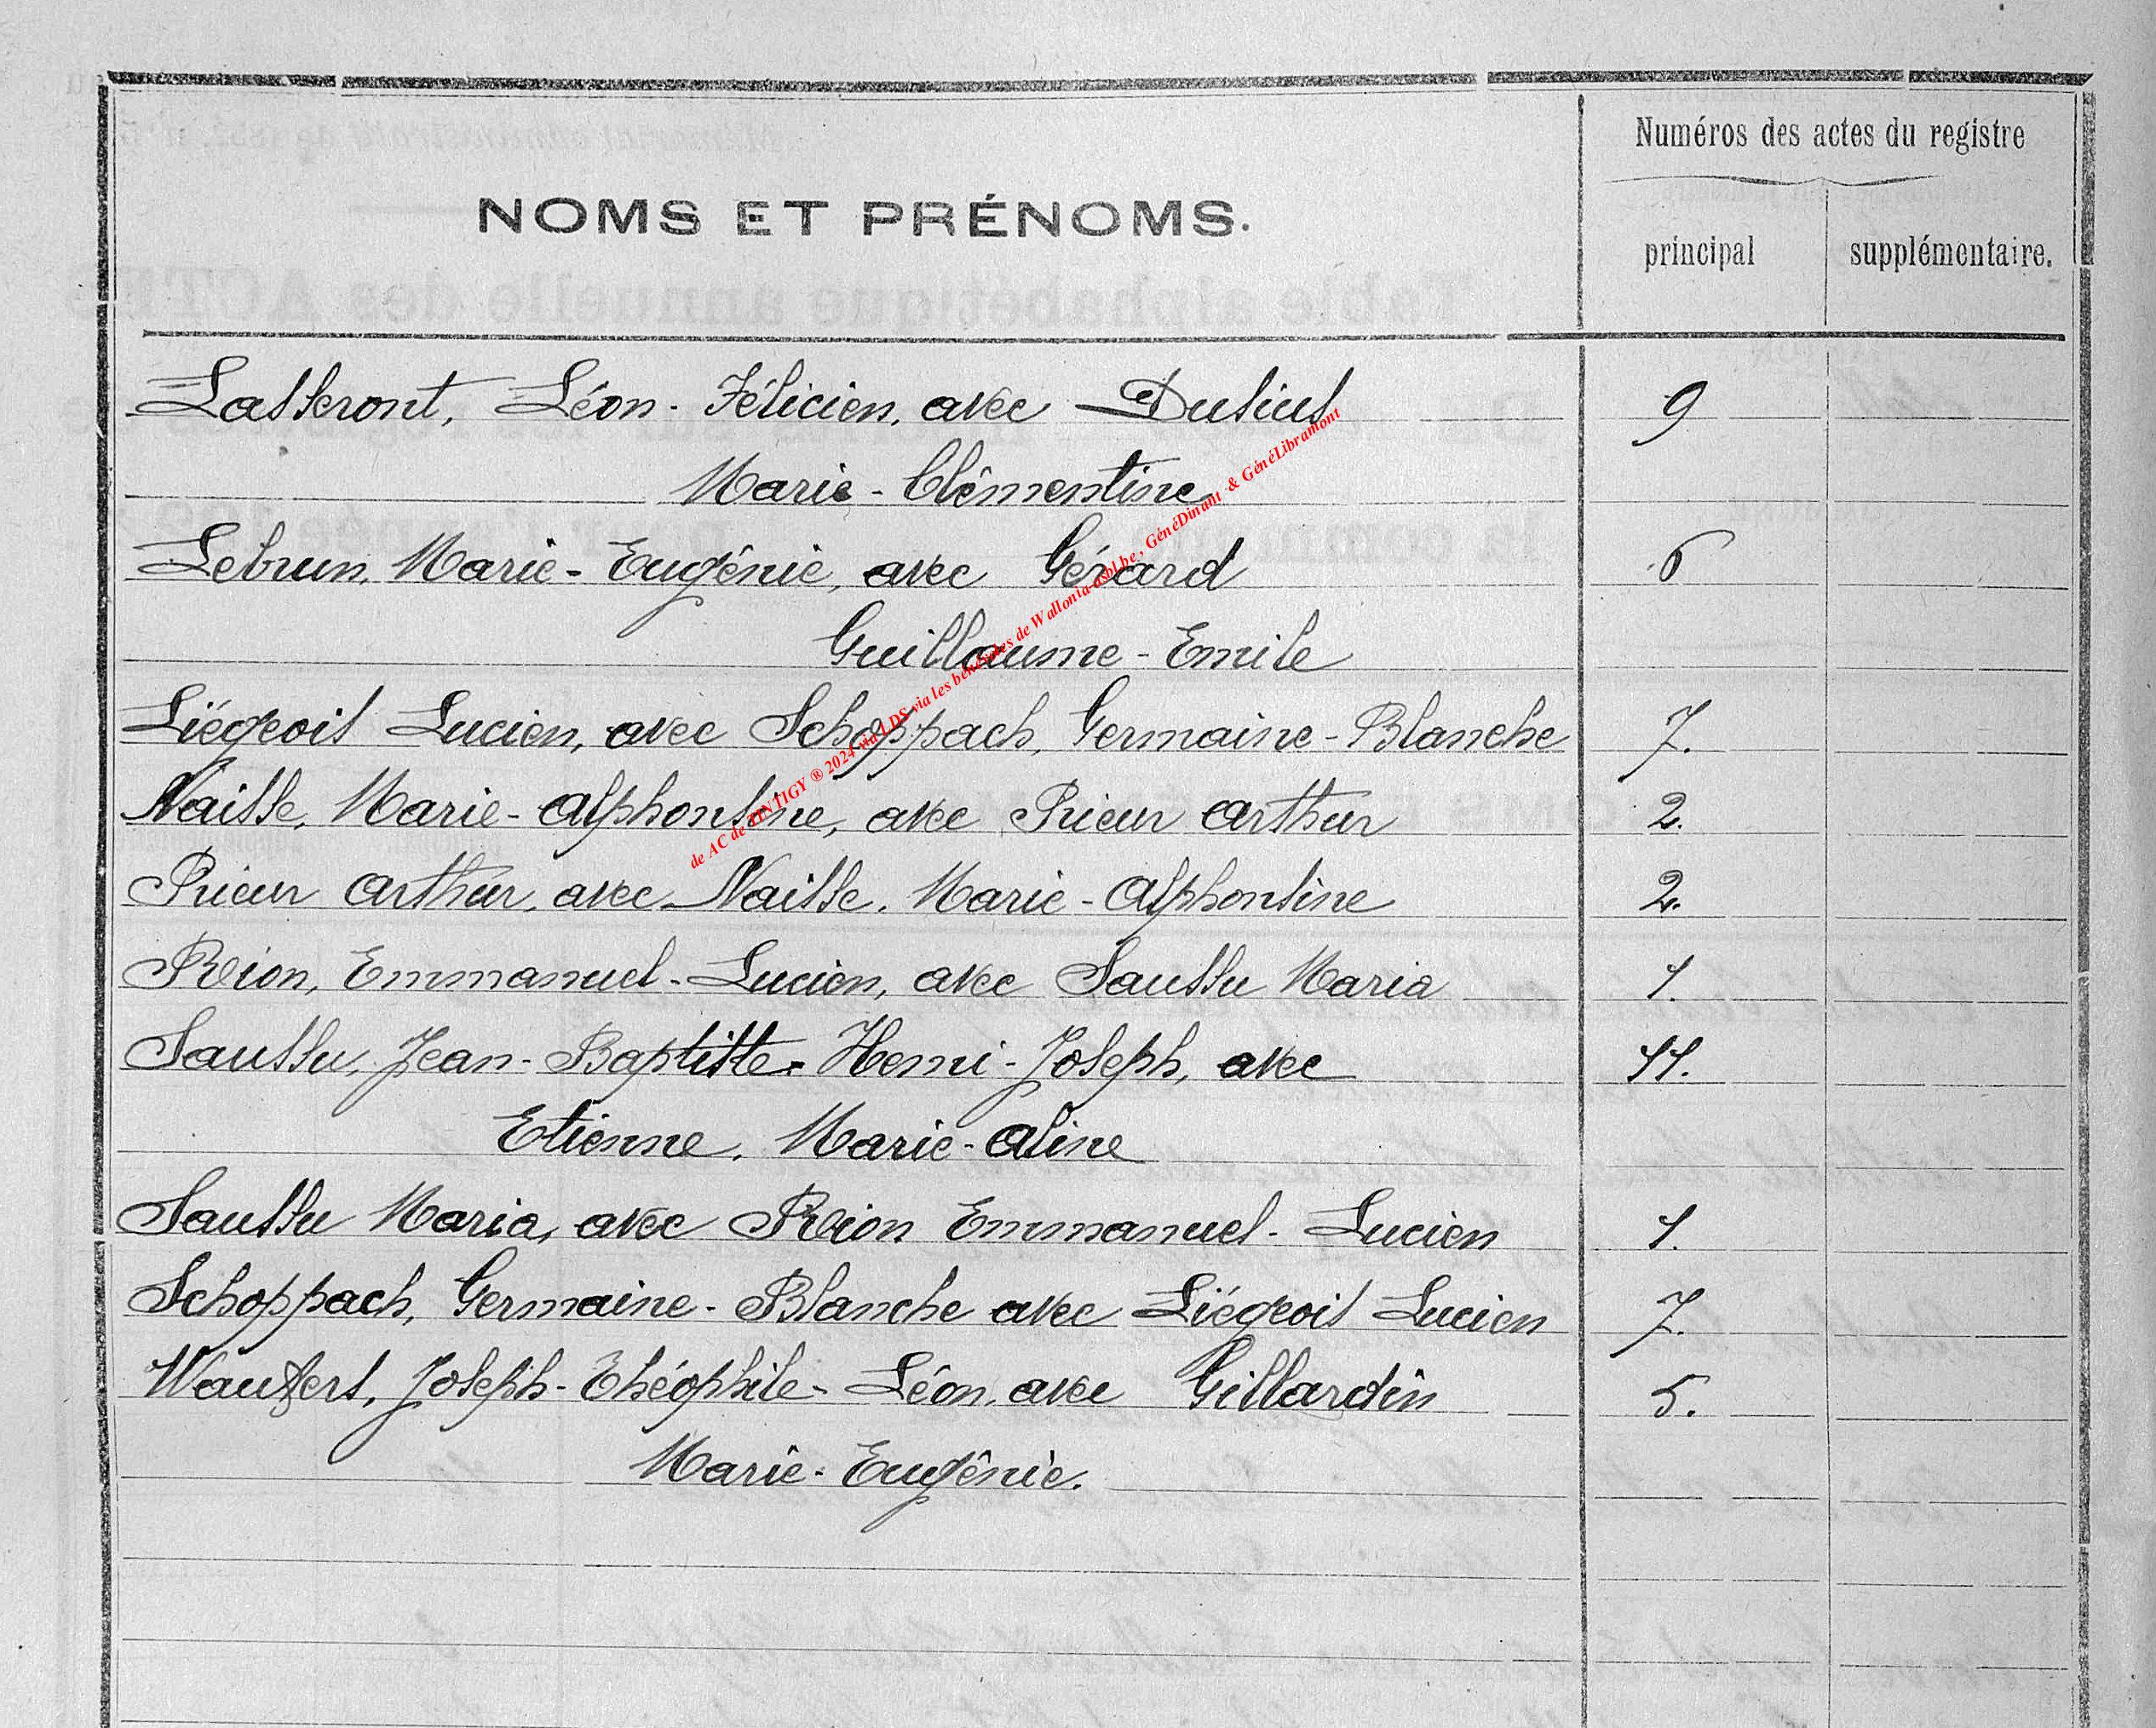 Numéros des actes du registre
NOMS ET PRÉNOMS.
principal
supplémentaire.
Lasseront, Léon-Félicien, avec Dusius 9
Marie-Clémentine
Lebrun, Marie-Eugénie, avec Gérard 6
Guillaume-Emile
Liégeois Lucien, avec Schoppach, Germaine-Blanche 7.
Naisse, Marie-Alphonsine, avec Prieur Arthur 2.
Prieur Arthur, avec Naisse, Marie-Alphonsine 2.
Réion, Emmanuel-Lucien, avec Saussu Maria 1.
Saussu, Jean-Baptiste-Henri-Joseph, avec 11.
Etienne, Marie-Aline
Saussu Maria, avec Réion Emmanuel-Lucien 1.
Schoppach, Germaine-Blanche avec Liégeois Lucien 7.
Joseph-Théophile-Léon, avec Gillardin 5.
Marie-Eugénie.
de AC de TINTIGY ® 2024 via LDS via les bénévoles de Wallonia-asbl.be, GénéDinant & GénéLibramont